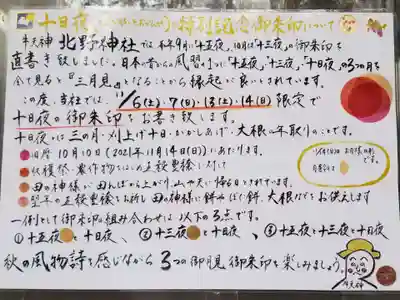 十日夜 特別記念御朱印について
牛天神 北野神社では毎年9月に"十五夜"、10月は"十三夜"の御朱印を
直書き致しました。日本の昔からの風習の1つに"十五夜""十三夜""十日夜"の3つの月を
全て見ると"三月見"となることから縁起が良いとされています。
この度、当社では、11/6(土)・7(日)・13(土)・14(日)限定で
十日夜の御朱印をお書き致します。
十日夜とは三の月・刈上げ十日・かかしあげ・大根の年取りのことです。
旧暦10月10日(2021年11月14日(日))にあたります。
収穫祭
田の神様に 田んぼから上がり、山や天に帰る日とされています。
翌年の五穀豊穣をお祈りし 田の神様に餅やぼた餅、大根などをお供えします
一例として御朱印の組み合わせは 以下の3点です。
①十五夜と十日夜、 ②十三夜と十日夜、 ③十五夜と十三夜と十日夜
秋の風物詩を感じながら3つの御月見御朱印を楽しみましょう。
牛天神